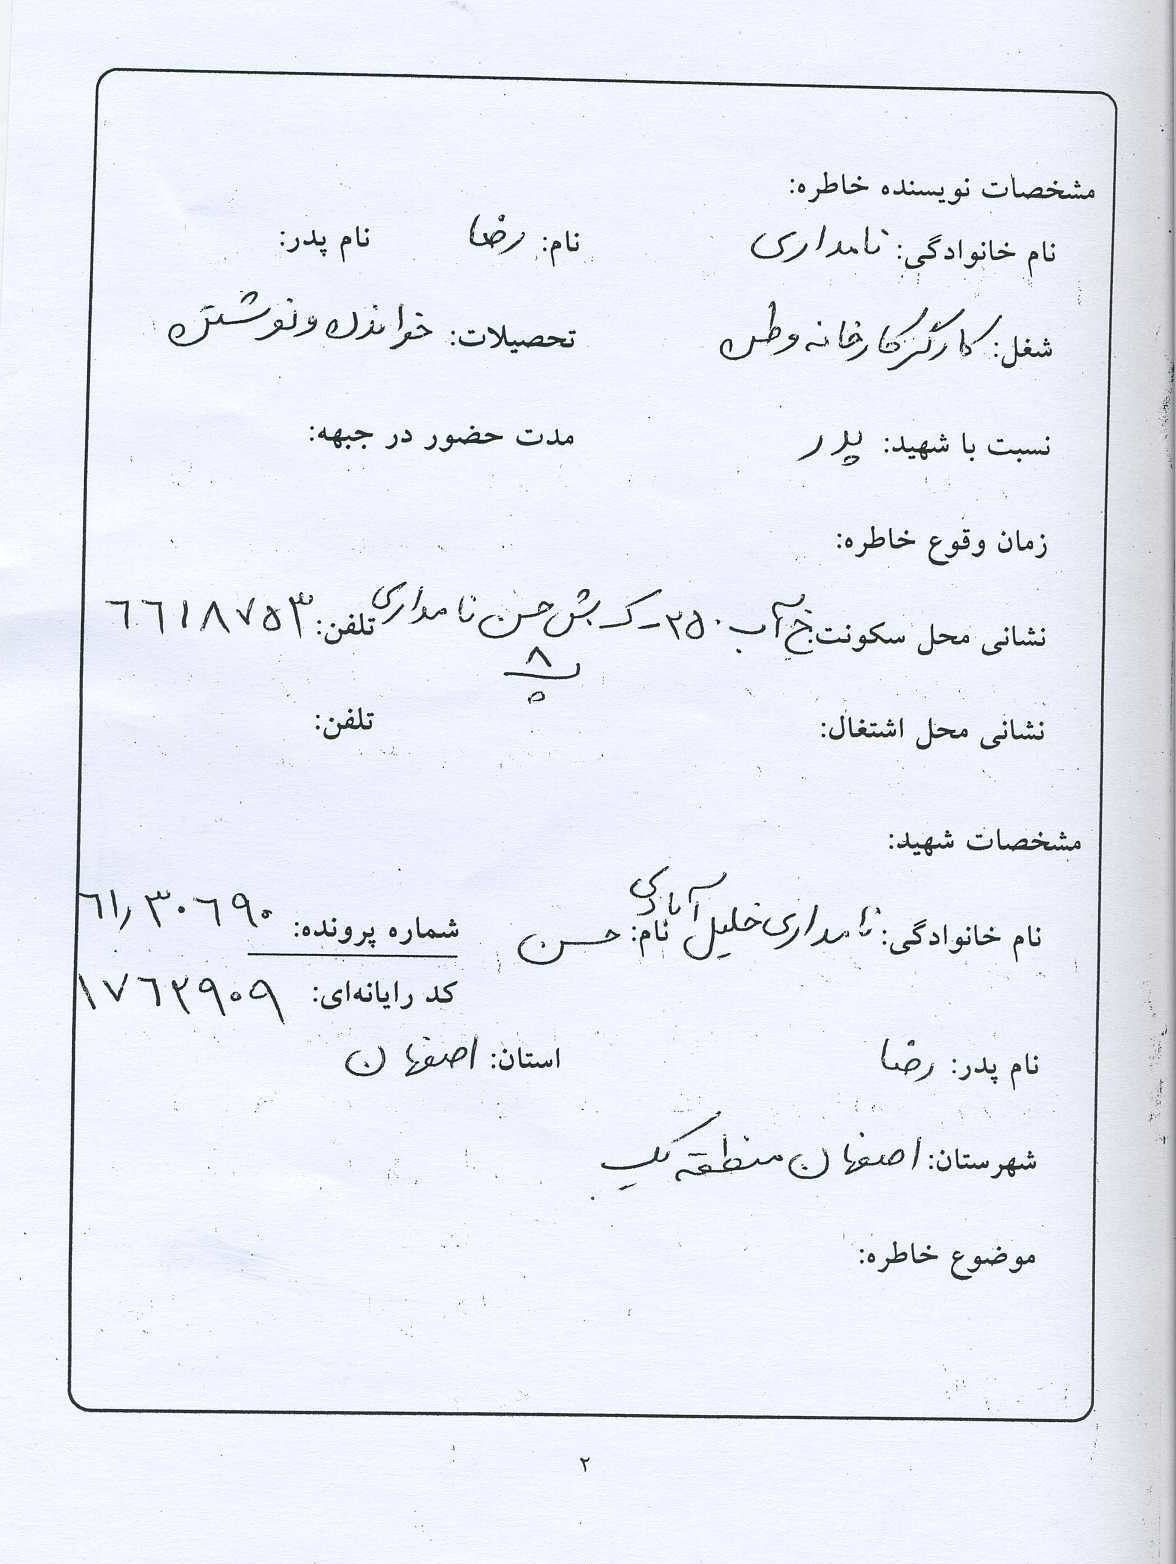 مشخصات نویسنده خاطره:
نام خانوادگی: نامداری نام: رضا نام پدر:
شغل: کارگر کارخانه وطن تحصیلات: خواندن و نوشتن
نسبت با شهید: پدر مدت حضور در جبهه:
زمان وقوع خاطره:
نشانی محل سکونت: خ آب ۲۵۰ - ک ش حسن نامداری تلفن: ۶۶۱۸۷۵۳
پ ۸
نشانی محل اشتغال: تلفن:
مشخصات شهید:
نام خانوادگی: نامداری خلیل آبادی نام: حسن شماره پرونده: ۶۱٫۳۰۶۹۰
کد رایانه‌ای: ۱۷۶۲۹۰۹
نام پدر: رضا استان: اصفهان
شهرستان: اصفهان منطقه یک
موضوع خاطره:
۲